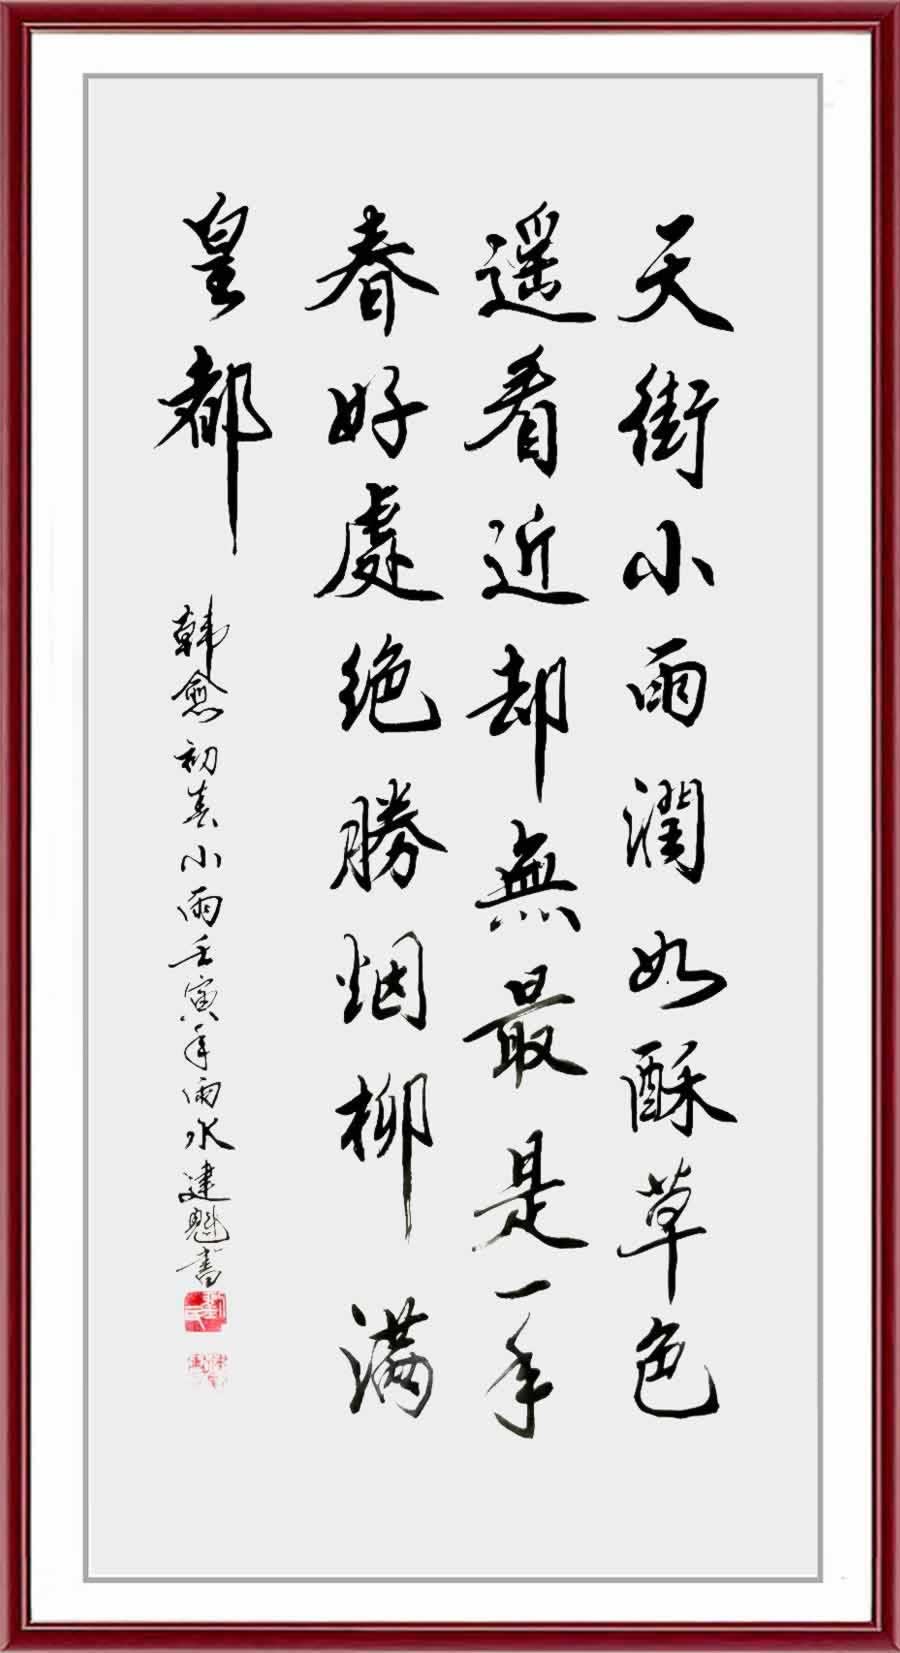 天街小雨潤如酥草色
遥看近却無最是一年
春好處绝勝烟柳满
皇都
韩愈初春小雨壬寅年雨水建魁書